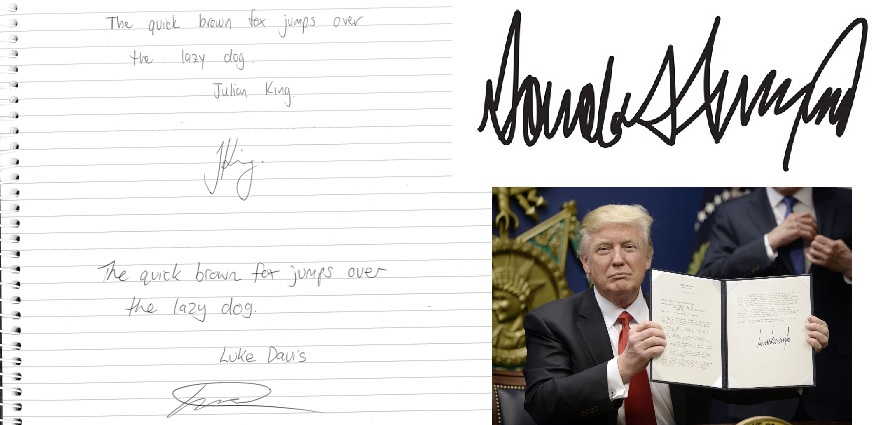 The quick brown fox jumps over
the lazy dog.
Julian King.
JKing.
The quick brown fox jumps over
the lazy dog.
Luke Davis
Donald Trump